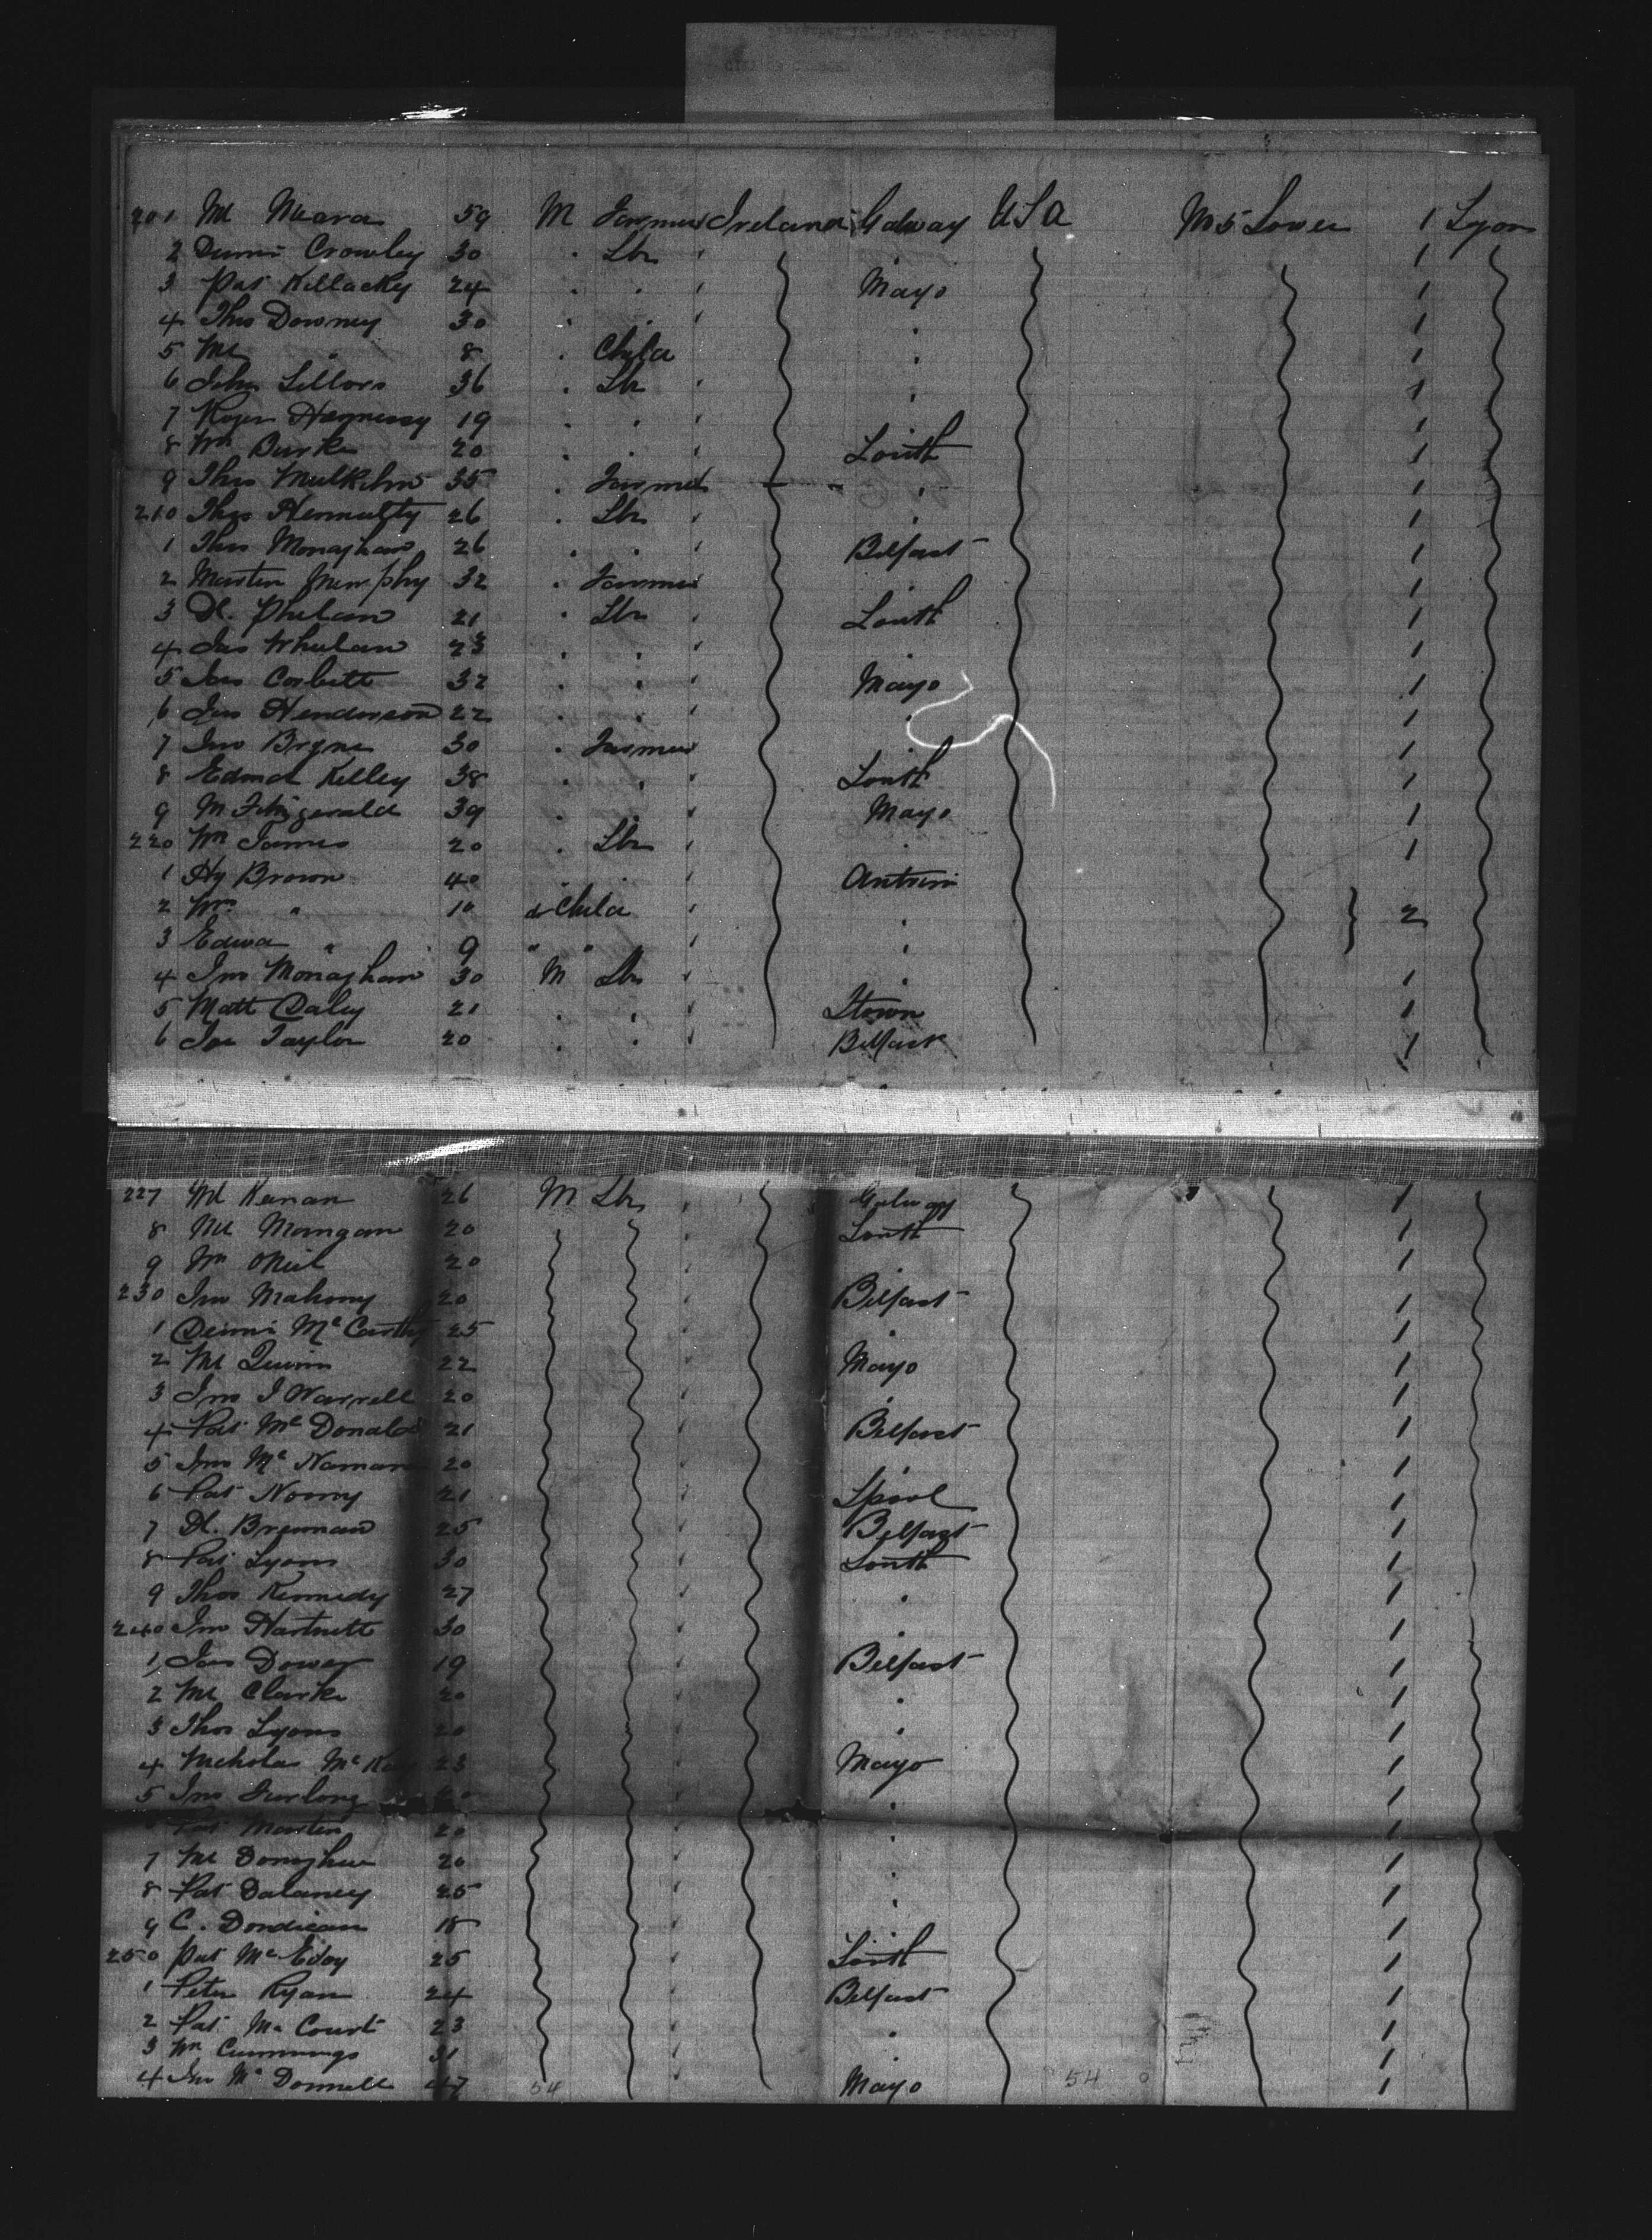 201 Ml Meara 59 M Farmer Ireland Galway USA No 5 Lower 1 Lyon
2 Dennis Crowley 30 " Lbr 1
3 Pat Killacky 24 " " Mayo 1
4 Thos Downey 30 " " " 1
5 Ml " 8 " Child " 1
6 John 36 " Lbr " 1
7 Roger Hegnessy 19 " " " 1
8 Wm Burke 20 " " Louth 1
9 Thos 35 " Farmer " 1
210 Thos 26 " Lbr " 1
1 Thos Monaghan 26 " " Belfast 1
2 Martin Murphy 32 " Farmer " 1
3 Dl. Phelan 21 " Lbr Louth 1
4 Jas Whelan 23 " " " 1
5 Jas Corbett 32 " " Mayo 1
6 Jas Henderson 22 " " " 1
7 Jno Bryne 30 " Farmer " 1
8 Edmd Kelley 38 " " Louth 1
9 M Fitzgerald 39 " " Mayo 1
220 Wm James 20 " Lbr " 1
1 Hy Brown 40 " " Antrim
2 Wm " 10 d Child " } 2
3 Edwd " 9 " " "
4 Jno Monaghan 30 M Lbr " 1
5 Matt Daley 21 " " Ltown 1
6 Jas Taylor 20 " " Belfast 1
227 Ml Kenan 26 M Lbr Galway 1
8 Ml Mangan 20 Louth 1
9 Wm ONeil 20 " 1
230 Jno Mahony 20 Belfast 1
1 Dennis McCarthy 25 " 1
2 Ml Quinn 22 Mayo 1
3 Jno J Warrell 20 " 1
4 Pat McDonald 21 Belfast 1
5 Jno McNamara 20 " 1
6 Pat 21 Lpool 1
7 Dl. Brennan 25 Belfast 1
8 Pat Lyons 30 Louth 1
9 Thos Kennedy 27 " 1
240 Jno Hartnett 30 " 1
1 Jas Dower 19 Belfast 1
2 Ml Clarke 20 " 1
3 Thos Lyons 20 " 1
4 Nicholas McKay 23 Mayo 1
5 Jno Furlong 20 " 1
Pat Martin 20 " 1
7 Ml Donoghue 20 " 1
8 Pat Dalaney 25 " 1
9 C. Dondican 18 " 1
250 Pat McEvoy 25 Louth 1
1 Peter Ryan 24 Belfast 1
2 Pat McCourt 23 " 1
3 Wm Cummings 31 " 1
4 Jno McDonnell 47 54 Mayo 54 0 1